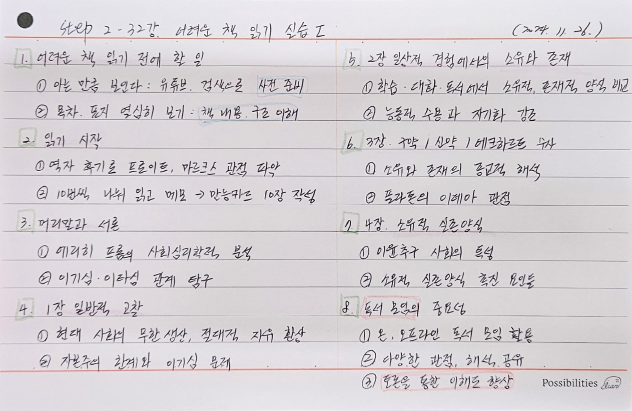 Step 2-32강. 어려운 책 읽기 실습 I (2024. 11. 26.)
1. 어려운 책 읽기 전에 할 일
① 아는 만큼 보인다: 유튜브. 검색으로 사전 준비
② 목차. 표지 열심히 보기: 책 내용. 구조 이해
2. 읽기 시작
① 역자 후기로 프로이트, 마르크스 관점 파악
② 10번씩 나눠 읽고 메모 → 만능카드 10장 작성
3. 머리말과 서론
① 에리히 프롬의 사회심리학적 분석
② 이기심·이타심 관계 탐구
4. 1장 일반적 고찰
① 현대 사회의 무한생산, 절대적 자유 환상
② 자본주의 한계와 이기심 문제
5. 2장 일상적 경험에서의 소유와 존재
① 학습·대화·독서에서 소유적, 존재적 양식 비교
② 능동적 수용과 자기화 강조
6. 3장. 구약/신약/에크하르트
① 소유와 존재의 종교적 해석
② 플라톤의 이데아 관점
7. 4장. 소유적 실존양식
① 이윤추구 사회의 특성
② 소유적 실존양식 촉진 요인들
8. 독서 모임의 중요성
① 온, 오프라인 독서 모임 활용
② 다양한 관점, 해석 공유
③ 토론을 통한 이해도 향상
Possibilities